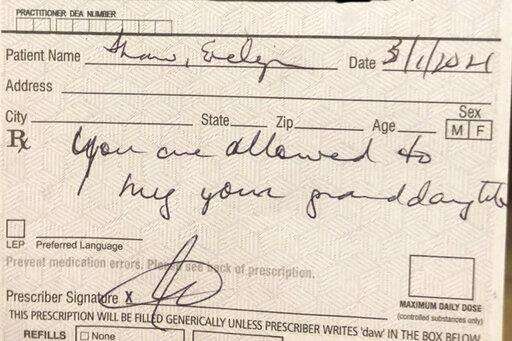 PRACTITIONER DEA NUMBER
Patient Name Shaw, Evelyn Date 3/1/2021
Address
City State Zip Age Sex
M F
Rx You are allowed to
hug your granddaughter
LEP Preferred Language
Prevent medication errors. Please see back of prescription.
Prescriber Signature X
MAXIMUM DAILY DOSE
(controlled substances only)
THIS PRESCRIPTION WILL BE FILLED GENERICALLY UNLESS PRESCRIBER WRITES 'daw' IN THE BOX BELOW
REFILLS None